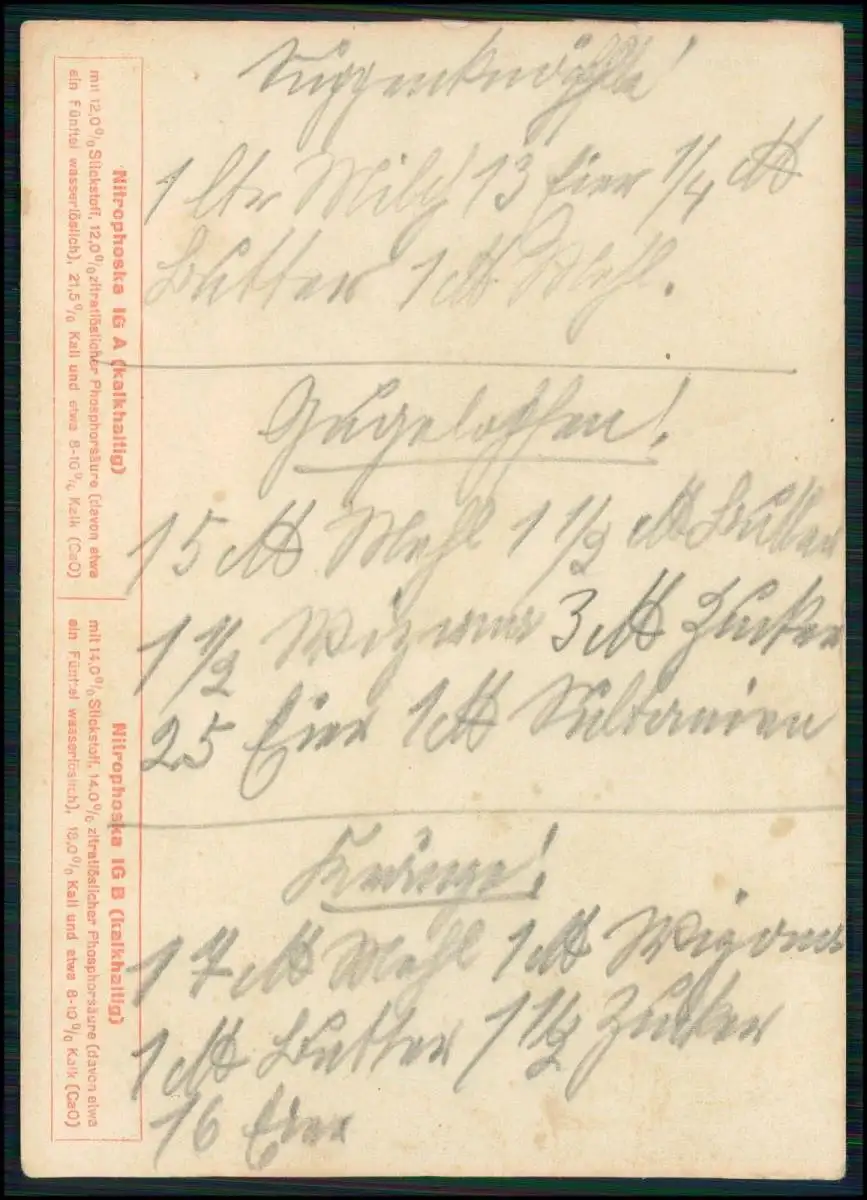 Suppenknöpfle!
1 ltr Milch 13 Eier 1/4 ℔
Butter 1 ℔ Mehl.
Gugelopfen!
15 ℔ Mehl 1 1/2 ℔ Butter
1 1/2 3 ℔ Zucker
25 Eier 1 ℔ Sultanien
Kränze!
17 ℔ Mehl 1 ℔
1 ℔ Butter 1 1/2 Zucker
16 Eier
Nitrophoska IG A (kalkhaltig)
mit 12,0% Stickstoff, 12,0% zitratlöslicher Phosphorsäure (davon etwa
ein Fünftel wasserlöslich), 21,5% Kali und etwa 8-10% Kalk (CaO)
Nitrophoska IG B (kalkhaltig)
mit 14,0% Stickstoff, 14,0% zitratlöslicher Phosphorsäure (davon etwa
ein Fünftel wasserlöslich), 18,0% Kali und etwa 8-10% Kalk (CaO)